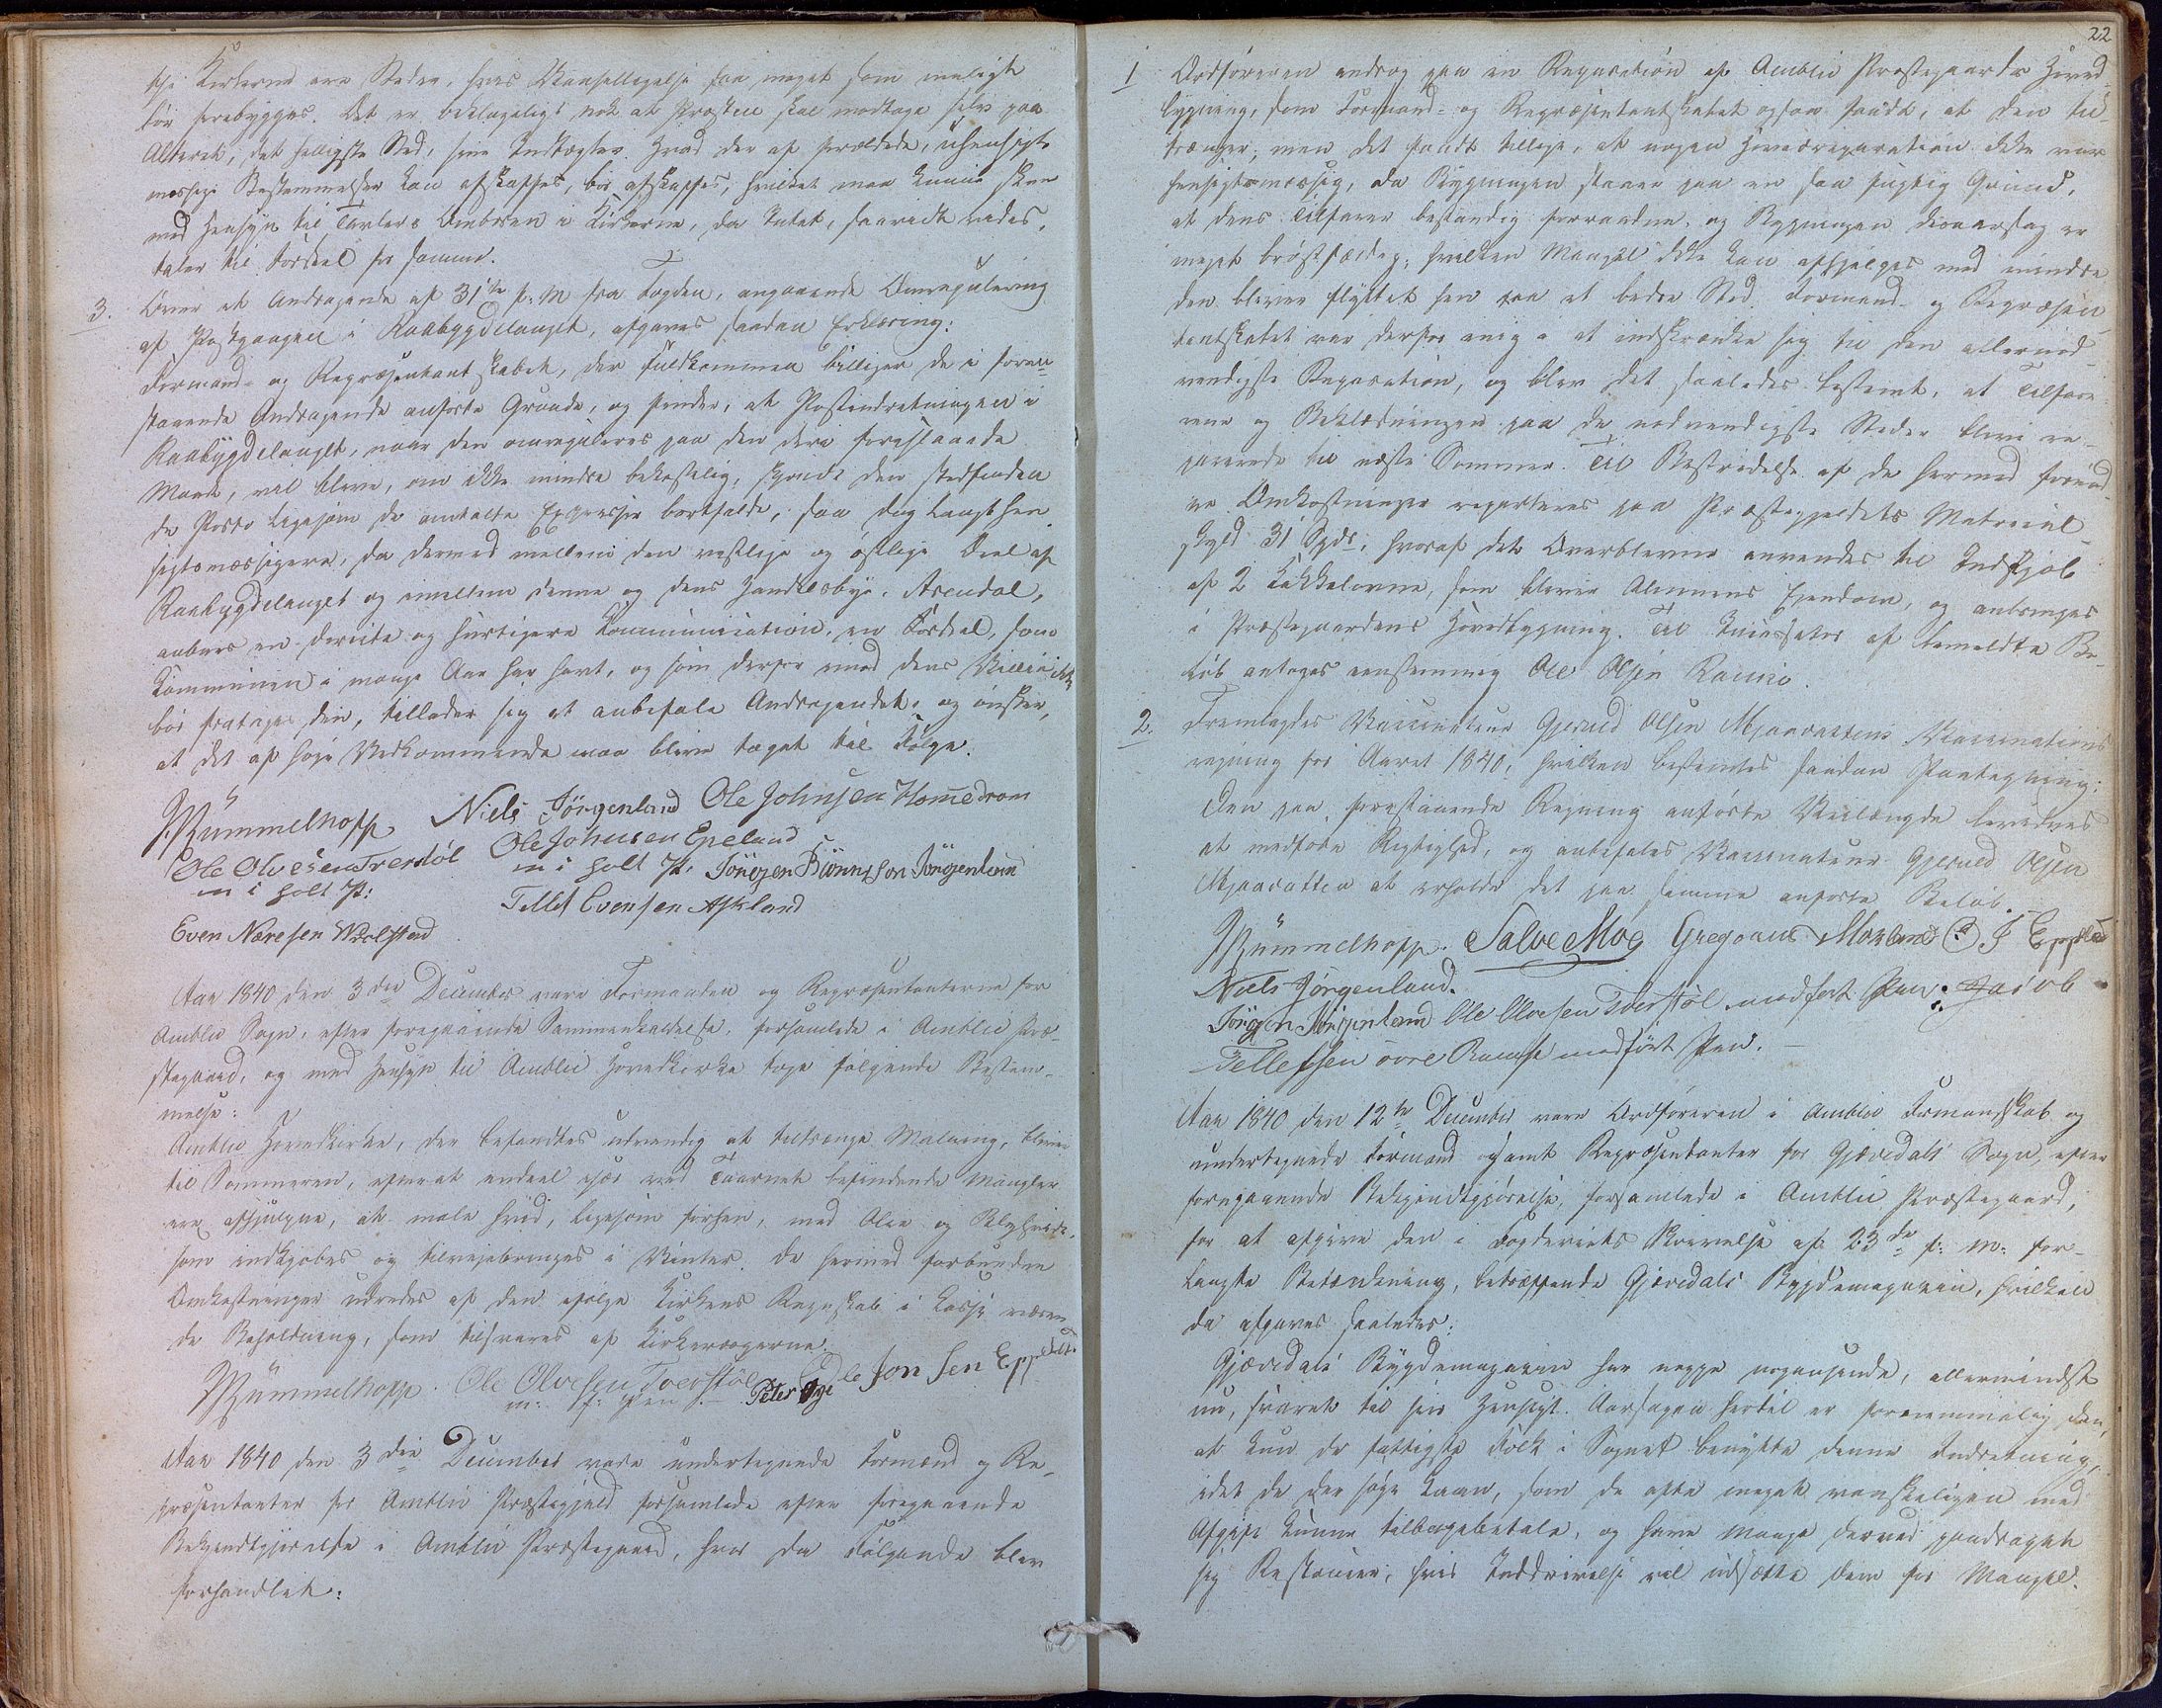 Kirkerne ere Steder, hvis Vanhelligelse saa meget som muligt
bör forebygges. Det er beklageligt nok at Præsten skal modtage selv paa
Alteret, det helligste Sted, sine Indtægter. Hvad der af forældede, uhensigts
mæssige Bestemmelser kan afskaffes, bör afskaffes, hvilket maa kunne skee
med Hensyn til Tavlers Ombæren i Kirkerne, da Intet, saavidt vides,
taler til Fordeel for samme.
3. Over et Andragende af 31te f: M fra Fogden, angaaende Omregulering
af Postgangen i Raabygdelauget, afgaves saadan Erklæring:
Formand- og Repræsentantskabet, der fuldkommen billiger de i foran
staaende Andragende anförte Grunde, og finder, at Postindretningen i
Raabygdelauget, naar den omreguleres paa den deri foreslaaede
Maade, vil blive, om ikke mindre bekostelig, den
de Porto ligesom de omtalte Expresser bortfalde, saa dog langt hen
sigtsmæssigere, da dermed mellem den vestlige og östlige Deel af
Raabygdelauget og imellem denne og dens Handelsbye, Arendal,
aabnes en directe og hurtigere Communication, en Fordeel, som
Communen i mange Aar har havt, og som derfor imod dens Villie ikke
bör fratages den, tillader sig at anbefale Andragendet, og önsker,
at det af höie Vedkommende maa blive taget til Fölge.
J. Rümmelhoff Niels Jörgenland Ole Johnsen Hommedrom
Ole Olvesen Tverstöl Ole Johnsen Epeland
m i holt P: m i holt P. Jörgen Biönnson Jörgenland
Tellef Evensen Askland
Even Næresen Wrolstad
Aar 1840 den 3die December vare Formanden og Repræsentanterne for
Aamlie Sogn, efter foregaaende Sammenkaldelse, forsamlede i Aamlie Præ-
stegaard, og med Hensyn til Aamlie Hovedkirke toge fölgende Bestem-
melse:
Aamlie Hovedkirke, der befandtes udvendig at tiltrænge Maling, bliver
til Sommeren, efterat endeel især ved Taarnet befindende Mangler
ere afhjulpne, at male hvid, ligesom forhen, med Olie og Blyhvidt,
som indkjöbes og tilveiebringes i Vinter. De hermed forbundne
Omkostninger udredes af den ifölge Kirkens Regnskab i Kasse væren
de Beholdning, som tilsvares af Kirkeværgerne.
J Rümmelhoff. Ole Olvesen Tverstöl Ole Jonsen Eppeland
m: f: Pen Peter Öye
Aar 1840 den 3die December vare undertegnede Formænd og Re-
præsentanter for Aamlie Præstegjeld forsamlede efter foregaaende
Bekjendtgjörelse i Aamlie Præstegaard, hvor da Fölgende blev
forhandlet:
22
1 Ordföreren androg paa en Reparation af Aamlie Præstegaards Hoved
bygning, som Formand- og Repræsentantskabet ogsaa fandt, at den til
trænger; men det fandt tillige, at nogen Hovedreparation ikke var
hensigtsmæssig, da Bygningen staaer paa en saa fugtig Grund,
at dens Tilfarer bestandig forraadne, og Bygningen desaarsag er
meget bröstfældig; hvilken Mangel ikke kan afhjælpes med mindre
den bliver flyttet hen paa et bedre Sted. Formand- og Repræsen
tantskabet var derfor enig i at indskrænke sig til den allernöd-
vendigste Reparation, og blev det saaledes bestemt, at Tilfare
rene og Beklædningen paa de nödvendigste Steder blive re-
parerede til næste Sommer. Til Bestridelse af de hermed forbund
ne Omkostninger reparteres paa Præstegjeldets Matricul-
skyld 31 Spdr, hvoraf det Overblevne anvendes til Indkjöb
af 2 Kakkelovne, som blive Almuens Eiendom, og anbringes
i Præstegaardens Hovedbygning. Til Incassator af bemeldte Be-
löb antoges eenstemmig Ole Olsen Ramse.
2. Fremlagdes Vaccinateur Gjeruld Olsen Mjaavattens Vaccinations
regning for Aaret 1840, hvilken bestemtes saadan Paategning:
Den paa foranstaaende Regning anförte Veilængde bevidnes
at medföre Rigtighed, og anbefales Vaccinateur Gjeruld Olsen
Mjaavatten at erholde det paa samme anförte Belöb.
J Rümmelhoff. Salve Moe Gregorius Morland O J Eppeld
Niels Jörgenland.
Jörgen Jörgenland Ole Olvesen Tverstöl medfört Pen: Jacob
Tellefsen övre Ramse medfört Pen.
Aar 1840 den 12te December vare Ordföreren i Aamlie Formandskab og
undertegnede Formand samt Repræsentanter for Gjövedals Sogn, efter
foregaaende Bekjendtgjörelse, forsamlede i Aamlie Præstegaard,
for at afgive den i Fogderiets Skrivelse af 23de f: M: for-
langte Betænkning, betræffende Gjövedals Bygdemagazin, hvilken
da afgaves saaledes:
Gjövedals Bygdemagazin har neppe nogensinde, allermindst
nu, svaret til sin Hensigt. Aarsagen hertil er fornemmelig den,
at kun de fattigste Folk i Sognet benytte denne Indretning,
idet de der söge Laan, som de ofte meget vanskeligen med
Afgift kunne tilbagebetale, og have mange derved paadraget
sig Restancer, hvis Inddrivelse vil udsætte dem for Mangel.